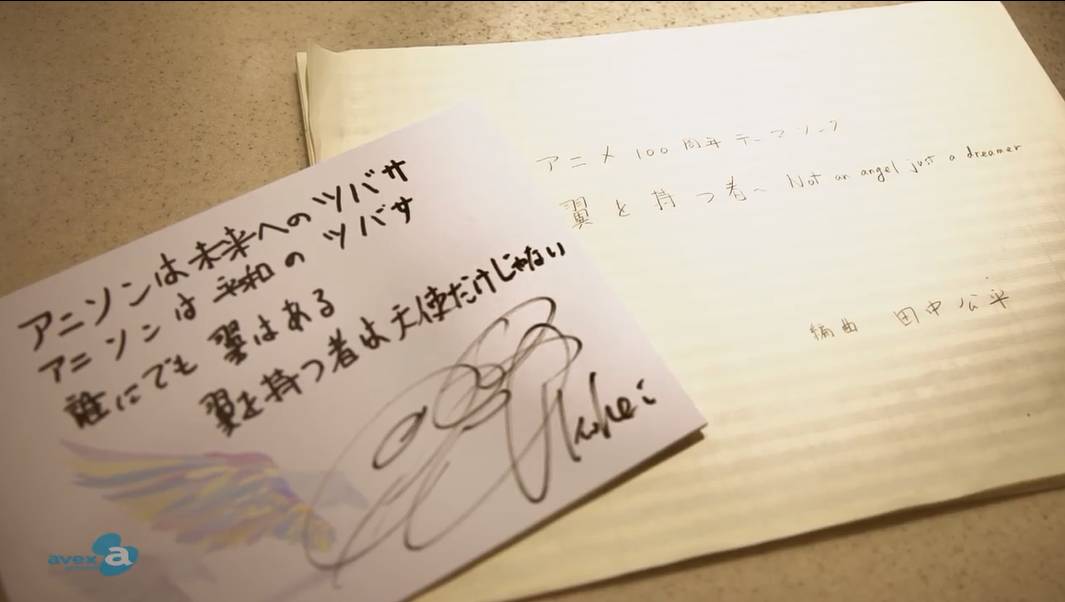 アニソンは未来へのツバサ
アニソンは平和のツバサ
誰にでも翼はある
翼を持つ者は天使だけじゃない
Kohei
アニメ100周年テーマソング
翼を持つ者~Not an angel just a dreamer
編曲 田中公平
avex